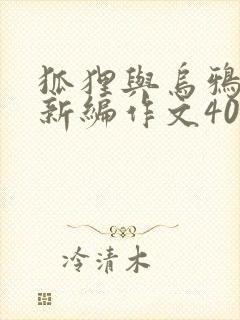 狐狸與烏鴉
新編作文40
冷清木